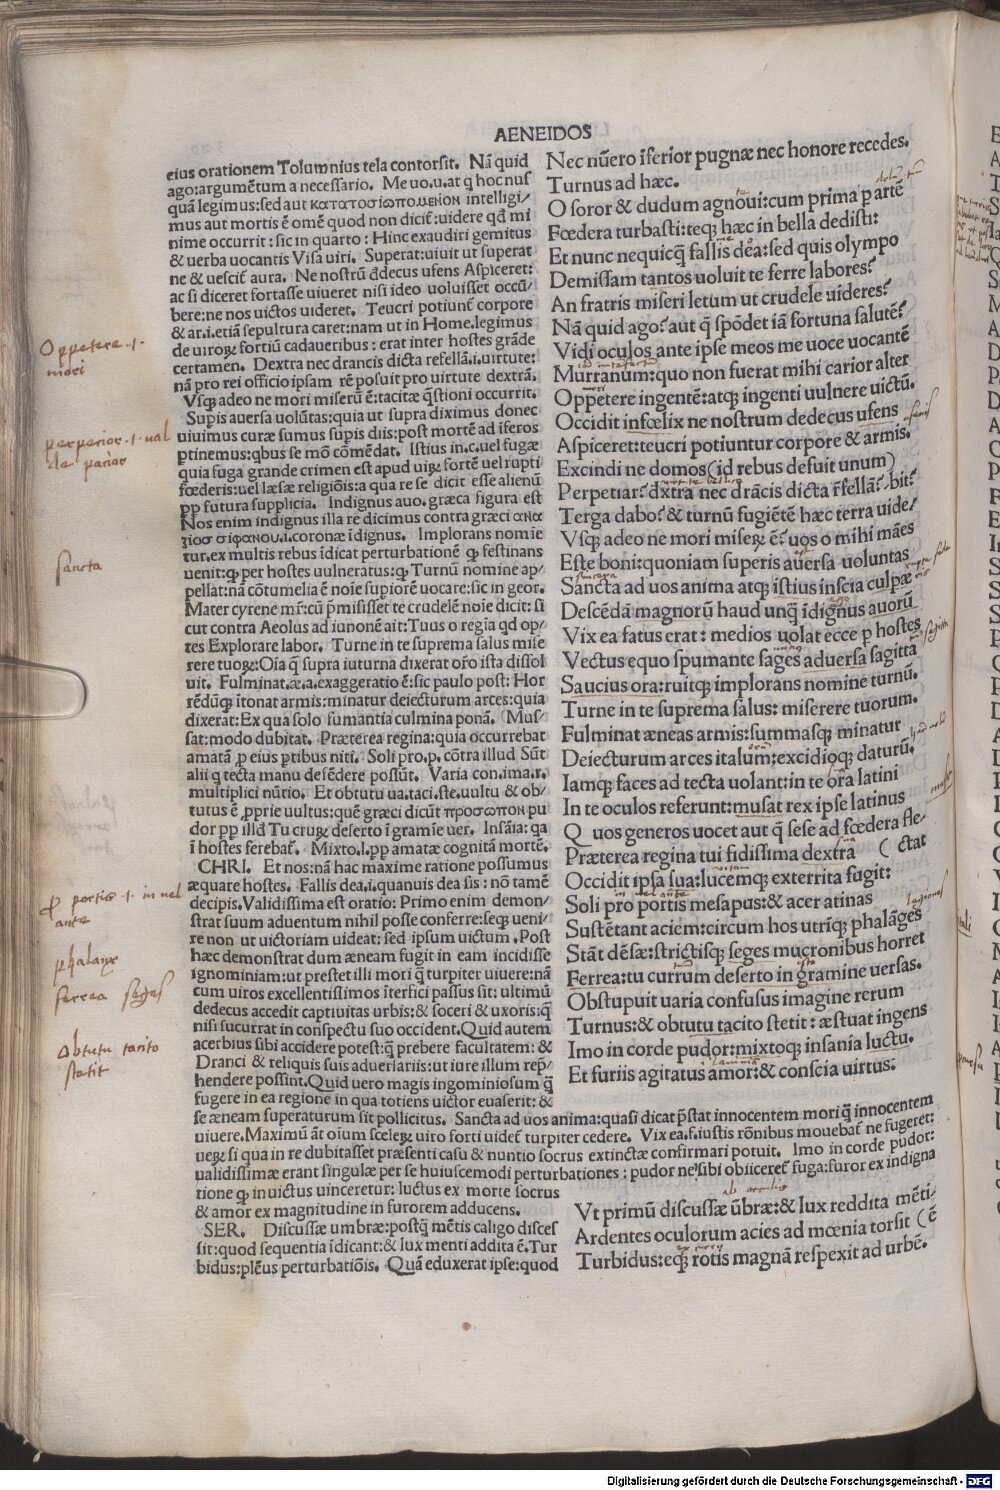 AENEIDOS
eius orationem Tolumnius tela contorsit. Nā quid
ago:argumētum a necessario. Me uo.u.at q hoc nus
quā legimus:sed aut κατατοσιωπομενον intelligi/
mus aut mortis ē omē quod non dicit:uidere qd mi
nime occurrit:sic in quarto:Hinc exaudiri gemitus
& uerba uocantis Visa uiri. Superat:uiuit ut superat
ne & uescit aura. Ne nostrū ddecus ufens Aspiceret:
ac si diceret fortasse uiueret nisi ideo uoluisset occū/
bere:ne nos uictos uideret. Teucri potiunt corpore
& ar.i.etiā sepultura caret:nam ut in Home.legimus
de uiroꝝ fortiū cadaueribus:erat inter hostes grāde
certamen. Dextra nec drancis dicta refellā.i.uirtute:
nā pro rei officio ipsam rē posuit pro uirtute dextrā.
Vsꝗ adeo ne mori miserū ē:tacitæ q̄stioni occurrit.
Supis auersa uolūtas:quia ut supra diximus donec
uiuimus curæ sumus supis diis:post mortē ad iferos
ptinemus:qbus se mō cōmēdat. Istius in.c.uel fugæ
quia fuga grande crimen est apud uiꝝ fortē uel rupti
fœderis:uel læsæ religiōis:a qua re se dicit esse alienū
pp futura supplicia. Indignus auo.græca figura est
Nos enim indignus illa re dicimus contra græci ανα
ξιοσ στφανου.i.coronæ īdignus. Implorans nomīe
tur.ex multis rebus īdicat perturbationē ꝙ festinans
uenit:ꝙ per hostes uulneratus:ꝙ Turnū nomine ap/
pellat:nā cōtumelia ē noīe supiorē uocare:sic in geor.
Mater cyrene mr̄:cū p̄misisset te crudelē noīe dicit:si
cut contra Aeolus ad iunonē ait:Tuus o regīa qd op/
tes Explorare labor. Turne in te suprema salus mise
rere tuoꝝ:Oīa q̄ supra iuturna dixerat ōro ista dissol
uit. Fulminat.æ.a.exaggeratio ē:sic paulo post:Hor
rēdūꝗ ītonat armis:minatur deiecturum arces:quia
dixerat:Ex qua solo fumantia culmina ponā. Mus/
sat:modo dubitat. Præterea regina:quia occurrebat
amatā p eius ptibus niti. Soli pro.p.cōtra illud Sūt
alii q tecta manu defēdere possūt. Varia con.ima.r.
multiplici nūtio. Et obtutu ua.taci.ste.uultu & ob/
tutus ē pprie uultus:quē græci dicūt προσωπον pu
dor pp illd Tu cruꝝ deserto ī gramīe uer. Insāia:qa
ī hostes ferebat. Mixto.l.pp amatæ cognitā mortē.
CHRI. Et nos:nā hac maxime ratione possumus
æquare hostes. Fallis dea.i.quanuis dea sis:nō tamē
decipis.Validissima est oratio:Primo enim demon/
strat suum aduentum nihil posse conferre:seꝗ ueni/
re non ut uictoriam uideat:sed ipsum uictum.Post
hæc demonstrat dum æneam fugit in eam incidisse
ignominiam:ut prestet illi mori q̄ turpiter uiuere:nā
cum uiros excellentissimos īterfici passus sit:ultimū
dedecus accedit captiuitas urbis:& soceri & uxoris:q
nisi sucurrat in conspectu suo occident.Quid autem
acerbius sibi accidere potest:q̄ prebere facultatem:&
Dranci & reliquis suis aduersariis:ut iure illum rep̄/
hendere possint.Quid uero magis ingominiosum q̄
fugere in ea regione in qua totiens uictor euaserit:&
se æneam superaturum sit pollicitus. Sancta ad uos anima:quasi dicat p̄stat innocentem mori q̄ innocentem
uiuere.Maximū āt oīum sceleꝝ uiro forti uidet turpiter cedere. Vix ea.f.iustis rōnibus mouebat ne fugeret:
ueꝝ si qua in re dubitasset præsenti casu & nuntio socrus extinctæ confirmari potuit. Imo in corde pudor:
ualidissimæ erant singulæ per se huiuscemodi perturbationes:pudor ne sibi obiiceret fuga:furor ex indigna
tione ꝙ inuictus uinceretur:luctus ex morte socrus
& amor ex magnitudine in furorem adducens.
SER. Discussæ umbræ:postꝗ mētis caligo disces
sit:quod sequentia īdicant:& lux menti addita ē.Tur
bidus:plēus perturbatiōis. Quā eduxerat ipse:quod
Nec nūero īferior pugnæ nec honore recedes.
Turnus ad hæc.
O soror & dudum agnoui:cum prima p artē
Fœdera turbasti:teꝗ hæc in bella dedisti:
Et nunc nequicꝗ fallis dea:sed quis olympo
Demissam tantos uoluit te ferre labores?
An fratris miseri letum ut crudele uideres?
Nā quid ago? aut q̄ spōdet iā fortuna salutē?
Vidi oculos ante ipse meos me uoce uocantē
Murranum:quo non fuerat mihi carior alter
Oppetere ingentē:atꝗ ingenti uulnere uictū.
Occidit infœlix ne nostrum dedecus ufens
Aspiceret:teucri potiuntur corpore & armis.
Excindi ne domos(id rebus defuit unum)
Perpetiar? dxtra nec drācis dicta r̄fellā? bit?
Terga dabo? & turnū fugiētē hæc terra uide/
Vsꝗ adeo ne mori miseꝝ ē? uos o mihi māes
Este boni:quoniam superis auersa uoluntas
Sancta ad uos anima atꝗ istius inscia culpæ
Descēdā magnorū haud unq̄ īdignus auorū
Vix ea fatus erat: medios uolat ecce p hostes
Vectus equo spumante sages aduersa sagitta
Saucius ora:ruitꝗ implorans nomine turnū.
Turne in te suprema salus: miserere tuorum.
Fulminat æneas armis:summasꝗ minatur
Deiecturum arces italum:excidioꝗ daturū.
Iamꝗ faces ad tecta uolant:in te ora latini
In te oculos referunt:musat rex ipse latinus
Q uos generos uocet aut q̄ sese ad fœdera fle/
Præterea regina tui fidissima dextra ( ctat
Occidit ipsa sua:lucemꝗ exterrita fugit:
Soli pro portis mesapus:& acer atinas
Sustētant aciem:circum hos utrīꝗ phalāges
Stāt dēsæ:strictisꝗ seges mucronibus horret
Ferrea:tu currum deserto in gramine uersas.
Obstupuit uaria confusus imagine rerum
Turnus:& obtutu tacito stetit: æstuat ingens
Imo in corde pudor:mixtoꝗ insania luctu.
Et furiis agitatus amor:& conscia uirtus:
Vt primū discussæ ūbræ:& lux reddita mēti/
Ardentes oculorum acies ad mœnia torsit (ē
Turbidus:eꝗ rotis magnā respexit ad urbē.
Oppetere .i.
mori
perpetior .i. ual
de patior
sancta
p portis .i. in uel
ante
phalanx
ferrea seges
Obtutu tacito
stetit
Digitalisierung gefördert durch die Deutsche Forschungsgemeinschaft - DFG